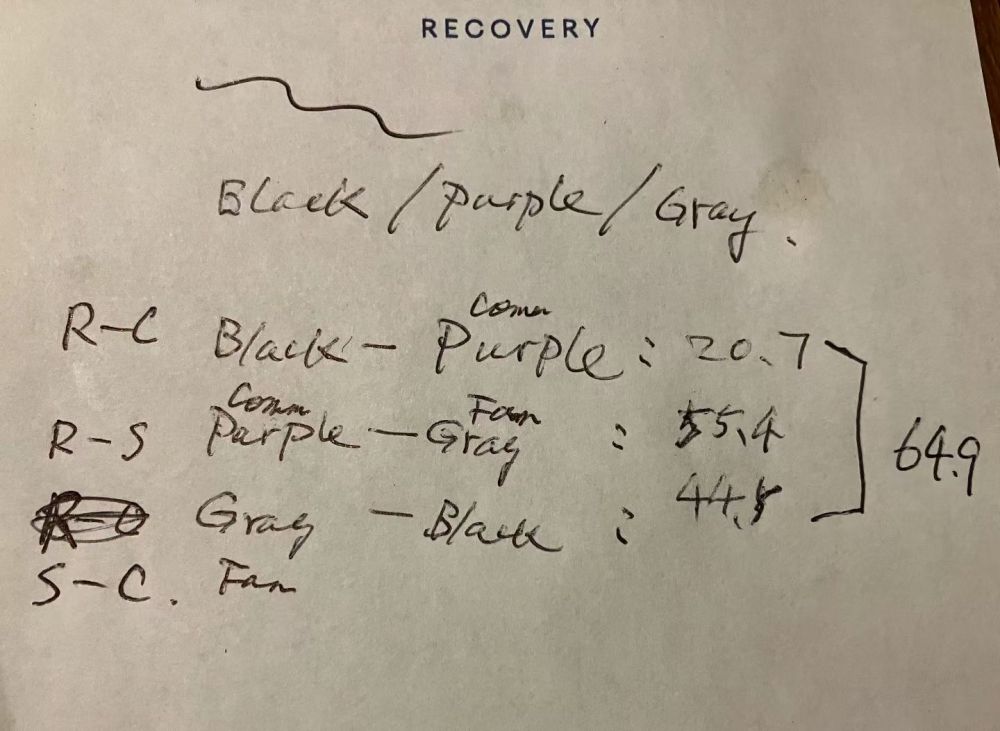 RECOVERY
Black / Purple / Gray.
R-C Black - Comm Purple : 20.7
R-S Comm Purple - Fan Gray : 55.4
Gray - Black : 44.
S-C. Fan
64.9